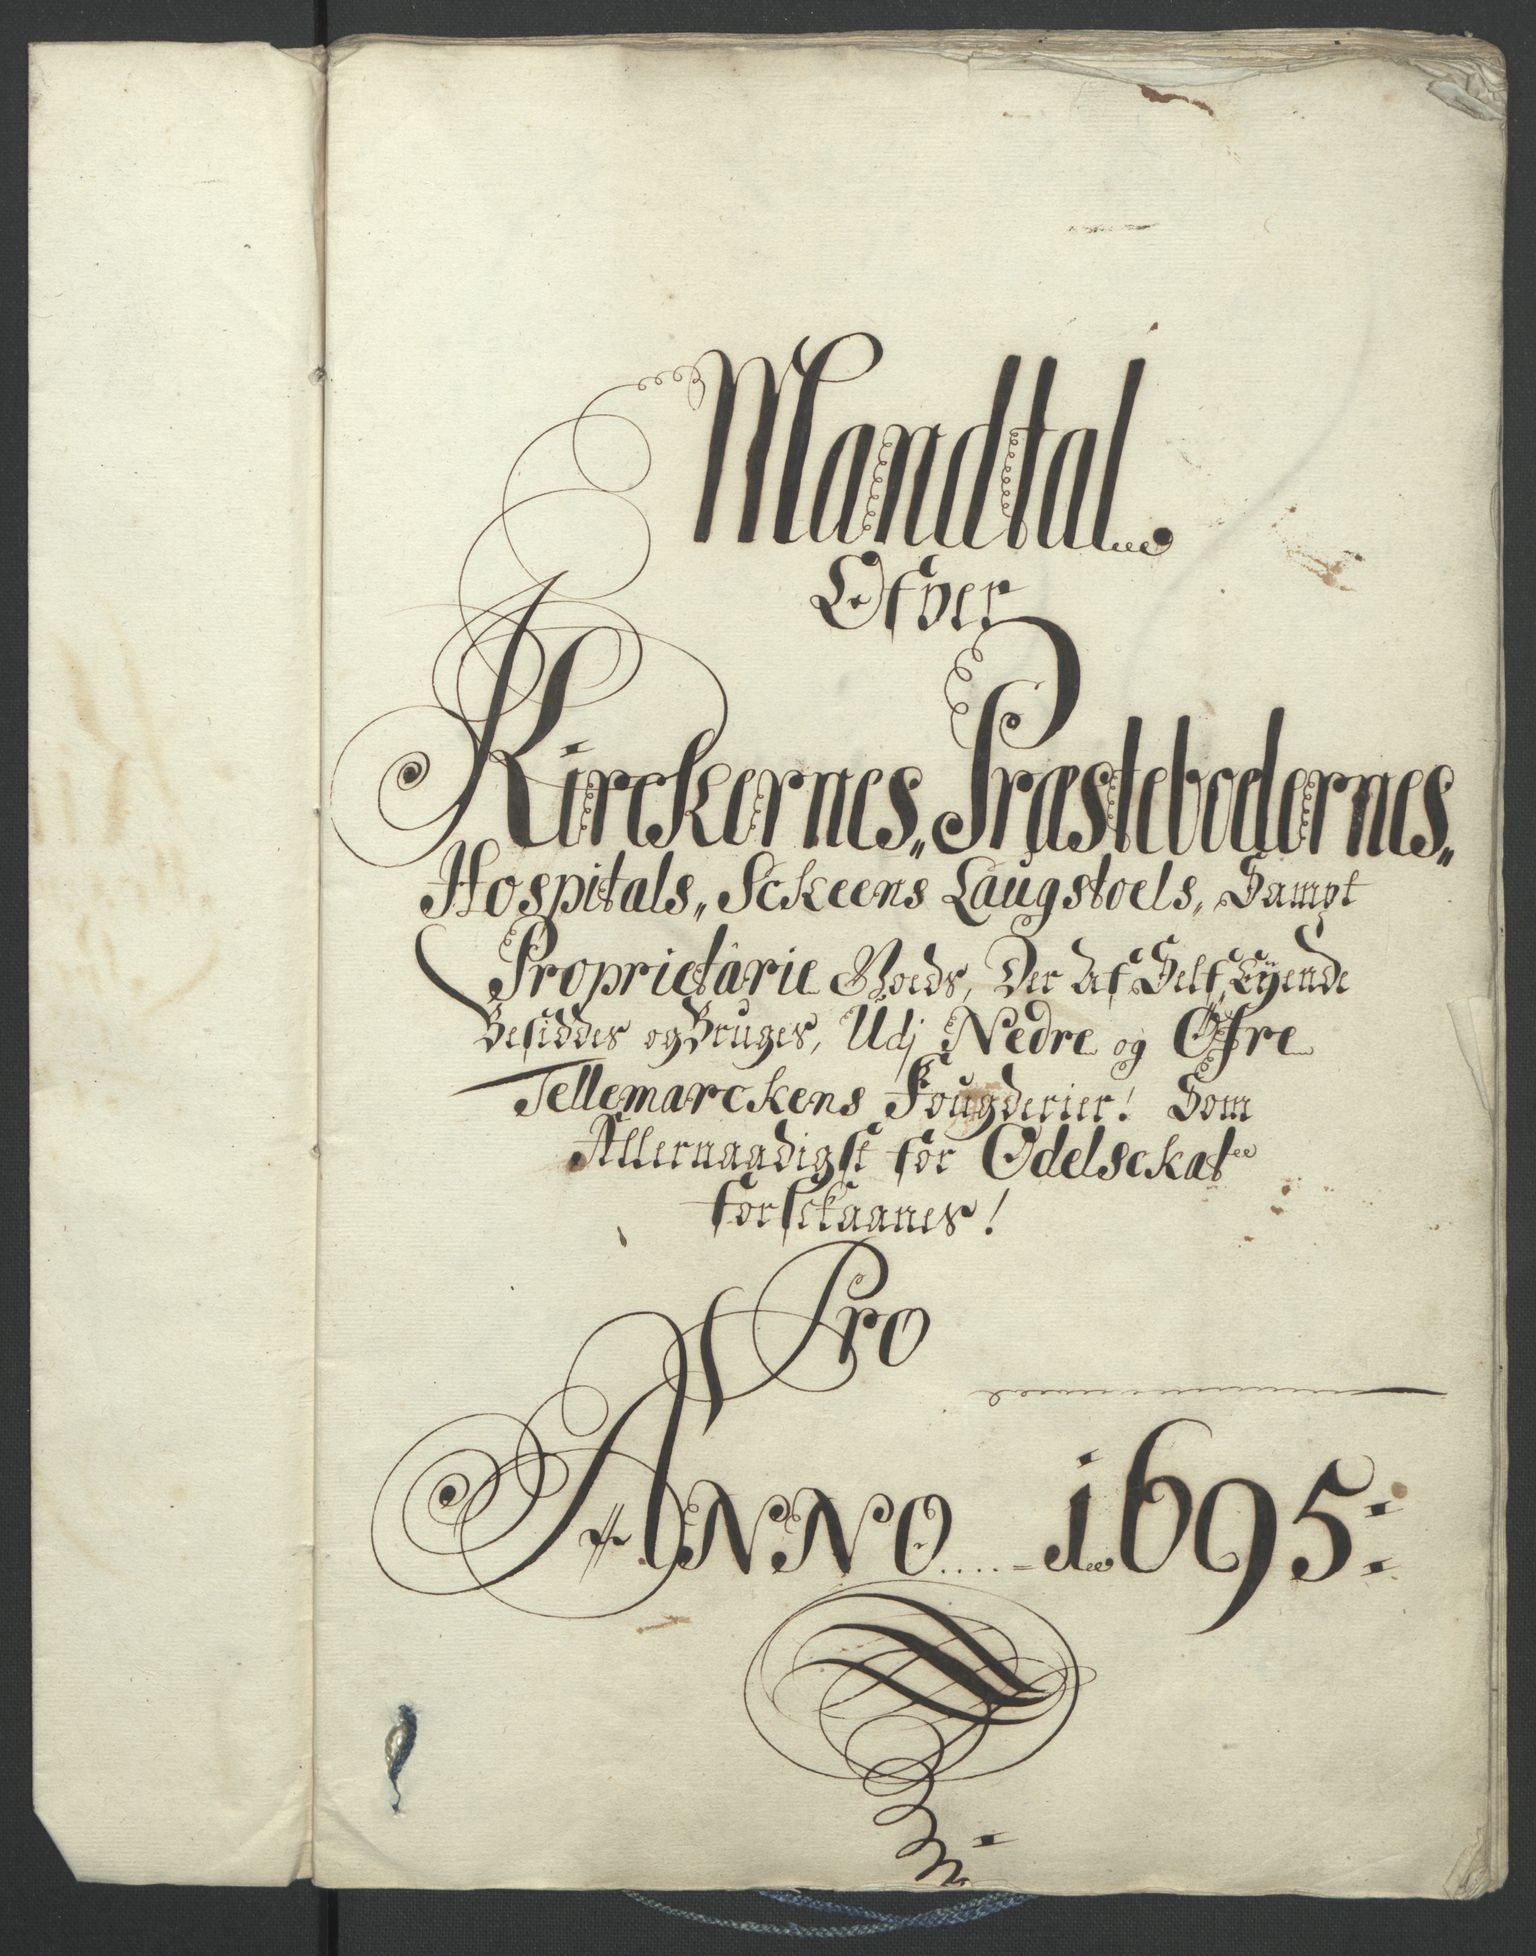 Mandtal
Ofver
Kirckernes, Præstebodernes,
Hospitals, Sckeens Laugstoels, Sampt
Proprietârie Goeds, Der af Self Eÿende
Besiddes og Bruges, Udj Nedre og Øfre
Tellemarckens Fougderier! Som
Allernaadigst for Odelsckat
forsckaanes!
Pro
ANNO 1695